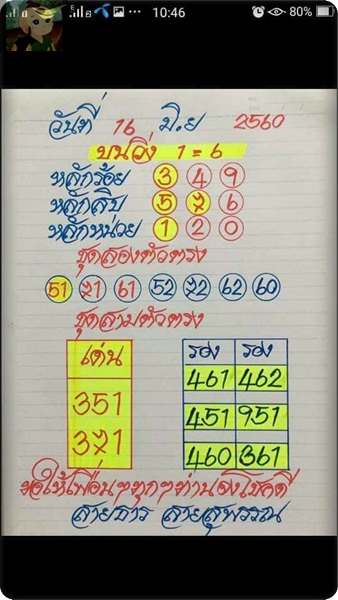 10:46 80%
วันที่ 16 มิ.ย 2560
บนวิ่ง 1=6
หลักร้อย 3 4 9
หลักสิบ 5 7 6
หลักหน่วย 1 2 0
ชุดสองตัวตรง
51 71 61 52 72 62 60
ชุดสามตัวตรง
เด่น
351
371
รอง รอง
461 462
451 951
460 361
ขอให้เพื่อนๆทุกๆท่านจงโชคดี
สายธาร สายสุพรรณ